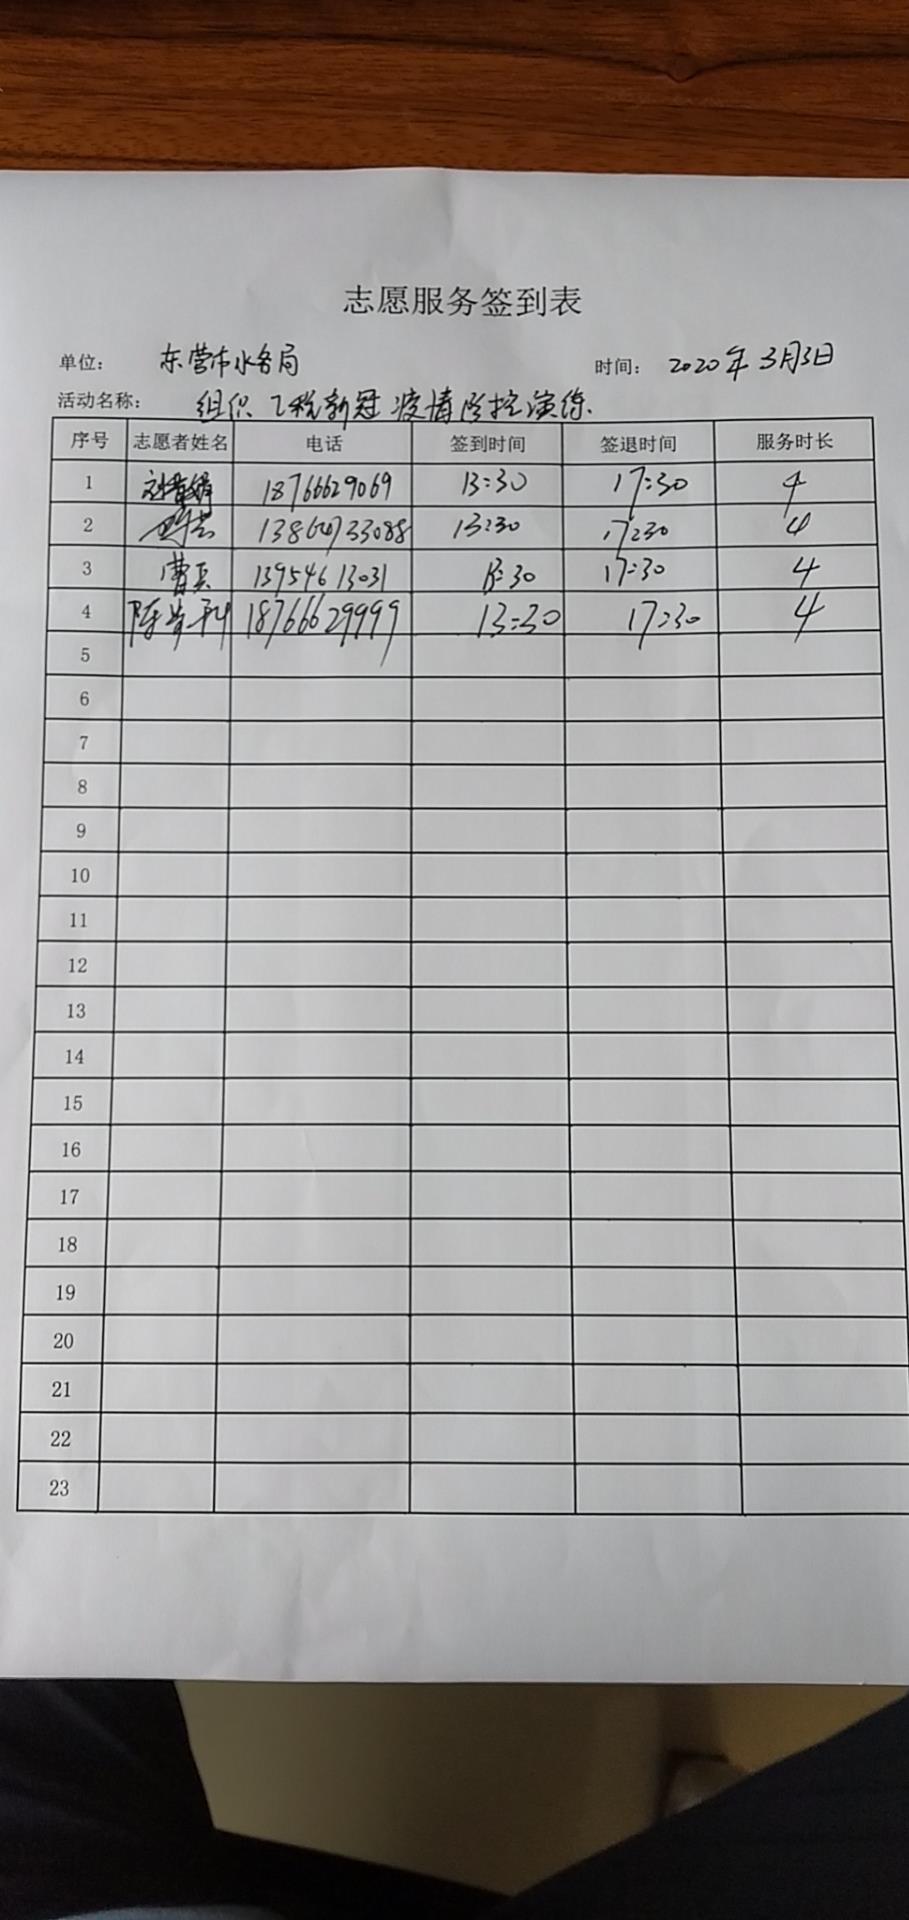 志愿服务签到表
单位： 东营市水务局 时间： 2020年3月3日
活动名称： 组织 新冠疫情防控演练.
序号 志愿者姓名 电话 签到时间 签退时间 服务时长
1 18766629069 13:30 17:30 4
2 13:30 17:30 4
3 曹兵 13954613031 13:30 17:30 4
4 陈 18766629999 13:30 17:30 4
5
6
7
8
9
10
11
12
13
14
15
16
17
18
19
20
21
22
23